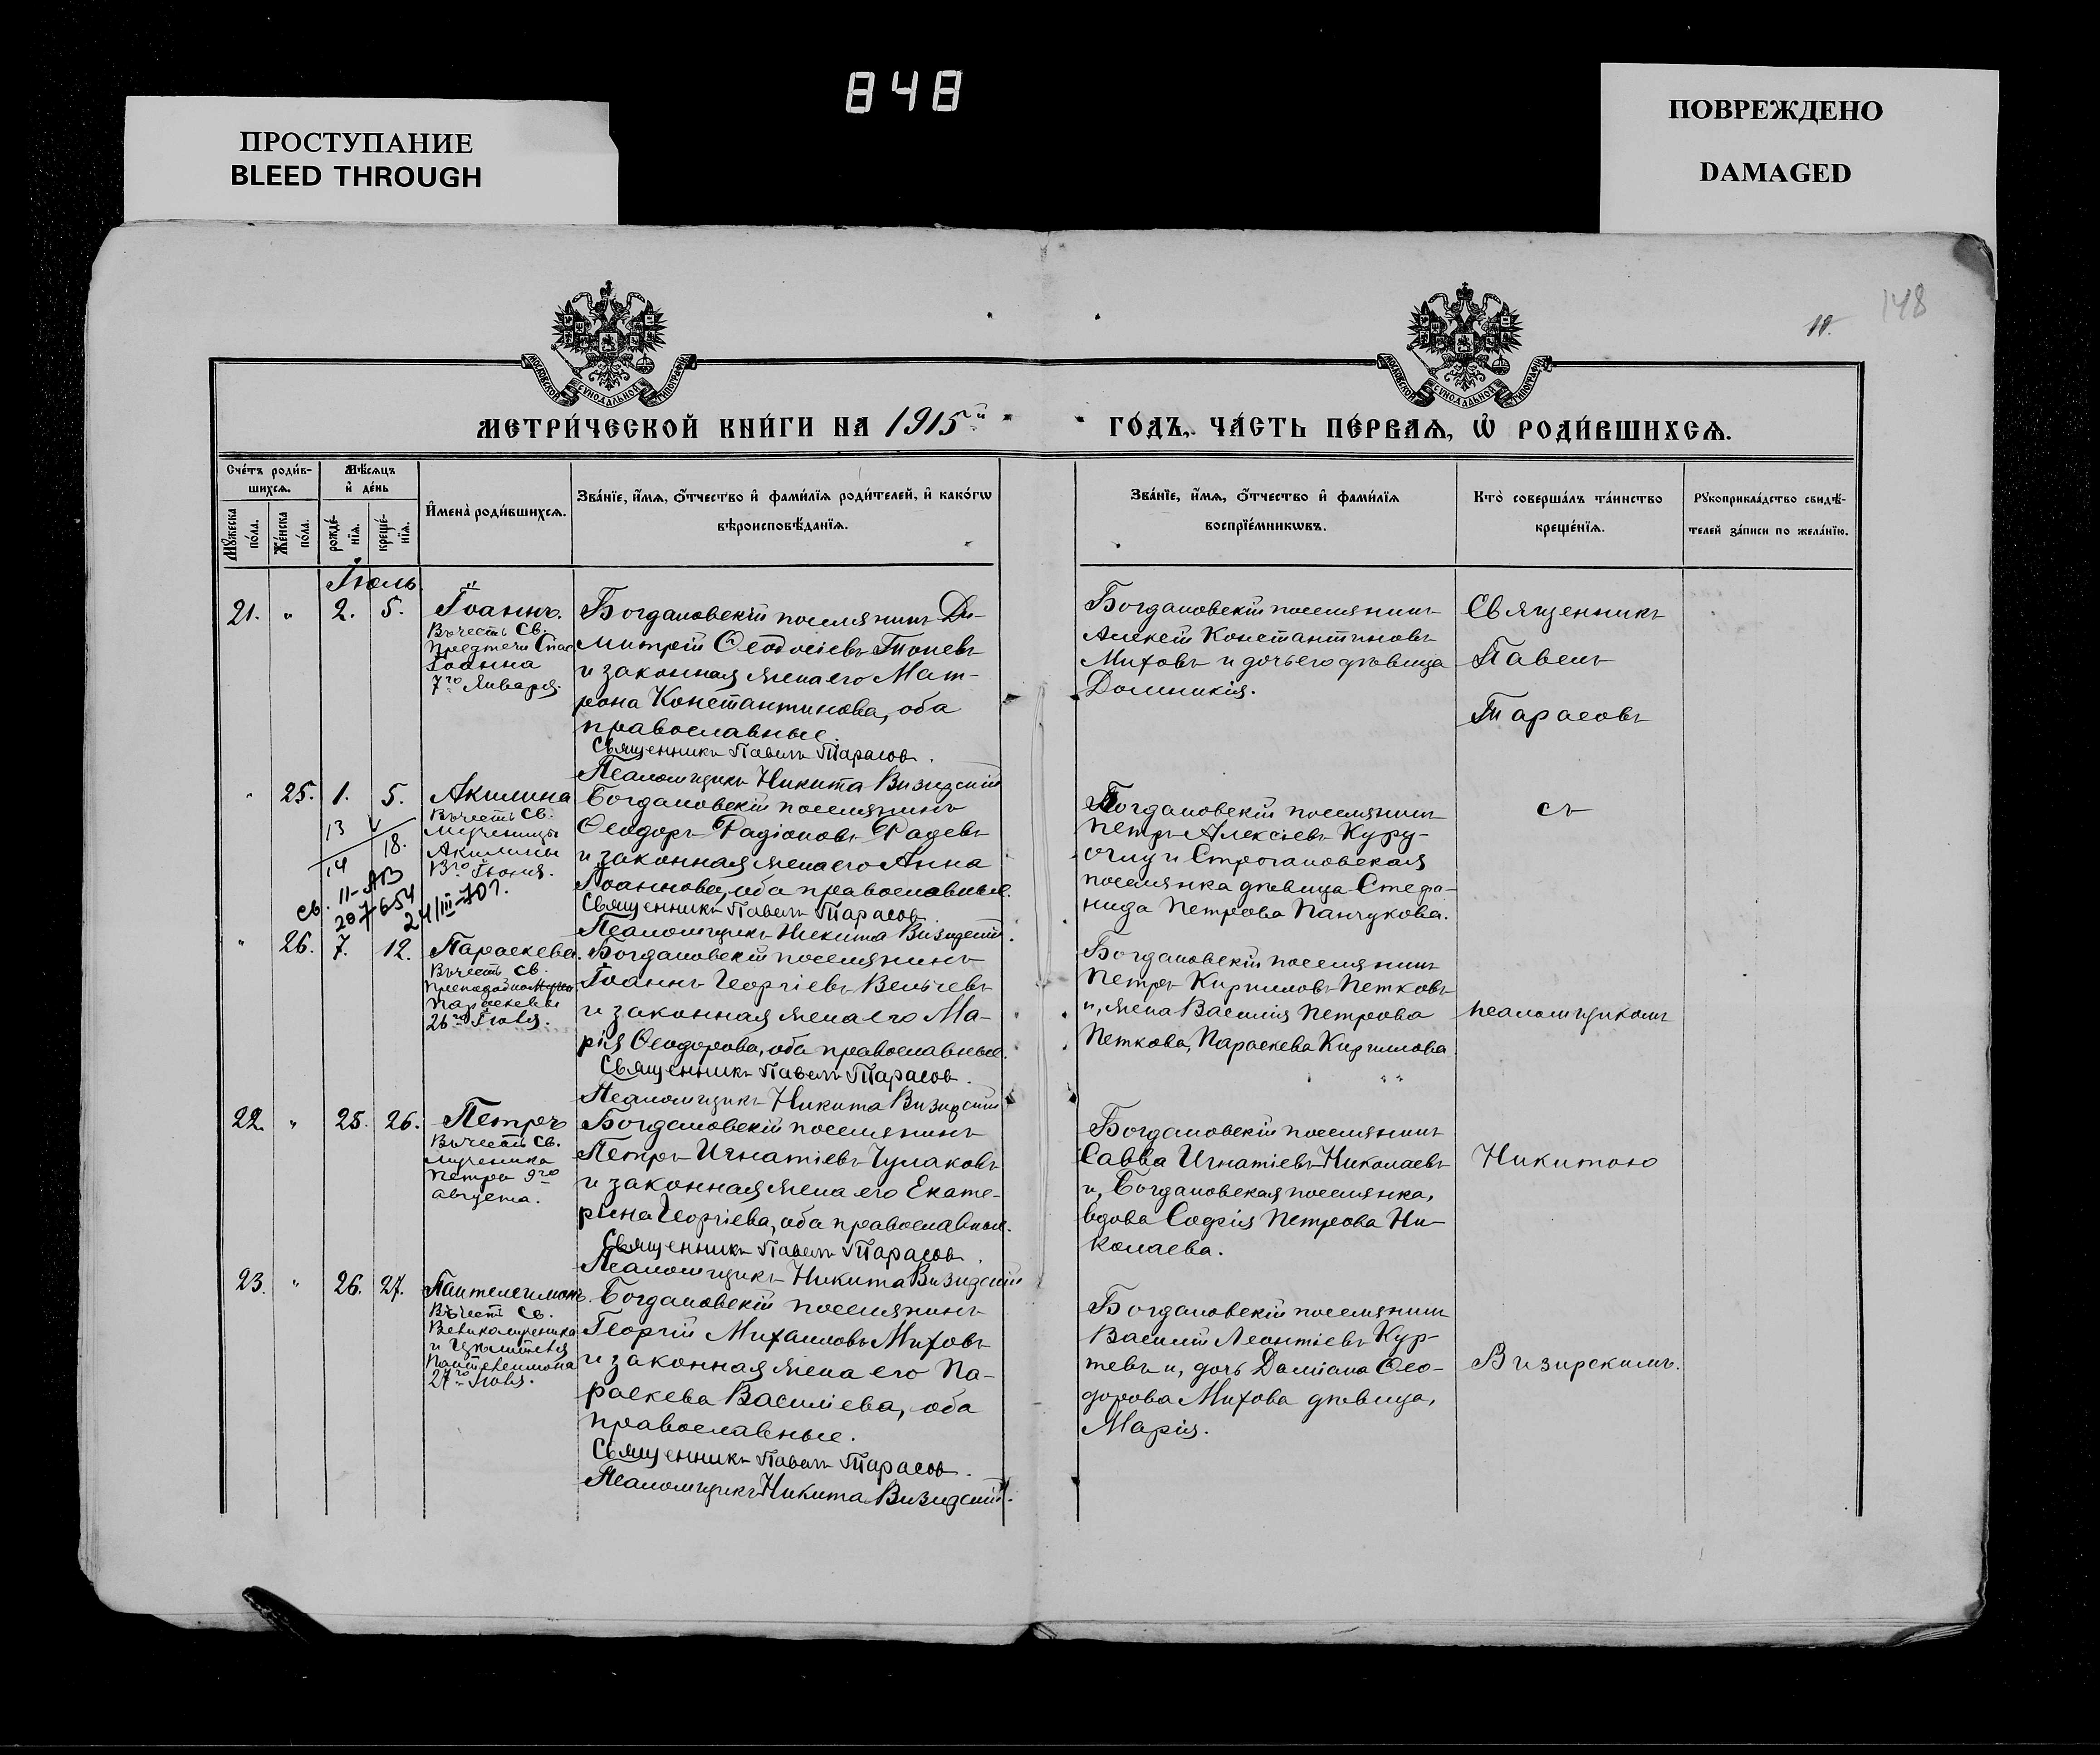 848
ПРОСТУПАНИЕ
BLEED THROUGH
ПОВРЕЖДЕНО
DAMAGED
148
11.
МЕТРИ́ЧЕСКОЙ КНИ́ГИ НА 1915й
ГО́ДЪ, ЧА́СТЬ ПЕ́РВАѦ, Ѡ҆ РОДИ́ВШИХСѦ.
Сче́тъ роди́в-
шихсѧ.
Мѣ́сѧцъ
и҆ де́нь
Мꙋ́жеска по́ла.
Же́нска по́ла.
рожде́-
нїѧ.
креще́-
нїѧ.
И҆мена̀ роди́вшихсѧ.
Зва́нїе, и҆́мѧ, ѻ҆́тчество и҆ фами́лїѧ роди́телей, и҆ како́гѡ
вѣроисповѣ́данїѧ.
Зва́нїе, и҆́мѧ, ѻ҆́тчество и҆ фами́лїѧ
воспрїе́мникѡвъ.
Кто̀ соверша́лъ та́инство
креще́нїѧ.
Рꙋкоприкла́дство свидѣ́-
телей за́писи по жела́нїю.
Іюль
21. " 2. 5.
Іоаннъ.
Въ честь Св.
Предтечи Спас.
Іоанна
7го Января.
Богдановскій поселянинъ Ди-
митрій Ѳеодосіевъ Тоневъ
и законная жена его Мат-
рона Константинова, оба
православные.
Священникъ Павелъ Тарасов.
Псаломщикъ Никита Визирскій
Богдановскій поселянинъ
Алексій Константиновъ
Миховъ и дочь его дѣвица
Домникія.
Священникъ
Павелъ
Тарасовъ
" 25. 1. 5.
Акилина
Въ честь Св.
Мученицы
Акилины
Іюня.
13
18.
14
св. II-АВ
24/III-70г.
Богдановскій поселянинъ
Ѳеодоръ Радіоновъ Радевъ
и законная жена его Анна
Іоаннова, оба православные.
Священникъ Павелъ Тарасов
Псаломщикъ Никита Визирскій.
Богдановскій поселянинъ
Петръ Алексіевъ Куру-
оглу и Строгановская
поселянка дѣвица Стефа-
нида Петрова Панчукова.
съ
" 26. 7. 12.
Параскева.
Въ честь Св.
Параскевы
26го Іюля.
Богдановскій поселянинъ
Іоаннъ Георгіевъ Вельчевъ
и законная жена его Ма-
рія Ѳеодорова, оба православные.
Священникъ Павелъ Тарасов.
Псаломщикъ Никита Визирскій
Богдановскій поселянинъ
Петръ Кирилловъ Петковъ
и, жена Василія Петрова
Петкова, Параскева Кириллова
" "
псаломщикомъ
22. " 25. 26.
Петръ
Въ честь Св.
мученика
Петра 9го
августа.
Богдановскій поселянинъ
Петръ Игнатіевъ Чулаковъ
и законная жена его Екате-
рина Георгіева, оба православные.
Священникъ Павелъ Тарасов.
Псаломщикъ Никита Визирскій
Богдановскій поселянинъ
Савва Игнатіевъ Николаевъ
и, Богдановская поселянка,
вдова Софія Петрова Ни-
колаева.
Никитою
23. " 26. 27.
Пантелеимонъ.
Въ честь Св.
Великомученика
и Цѣлителя
Пантелеимона
27го Іюля.
Богдановскій поселянинъ
Георгій Михаиловъ Миховъ
и законная жена его Па-
раскева Василіева, оба
православные.
Священникъ Павелъ Тарасов.
Псаломщикъ Никита Визирскій.
Богдановскій поселянинъ
Василій Леонтіевъ Кур-
тевъ и, дочь Даміана Ѳео-
дорова Михова дѣвица,
Марія.
Визирскимъ.